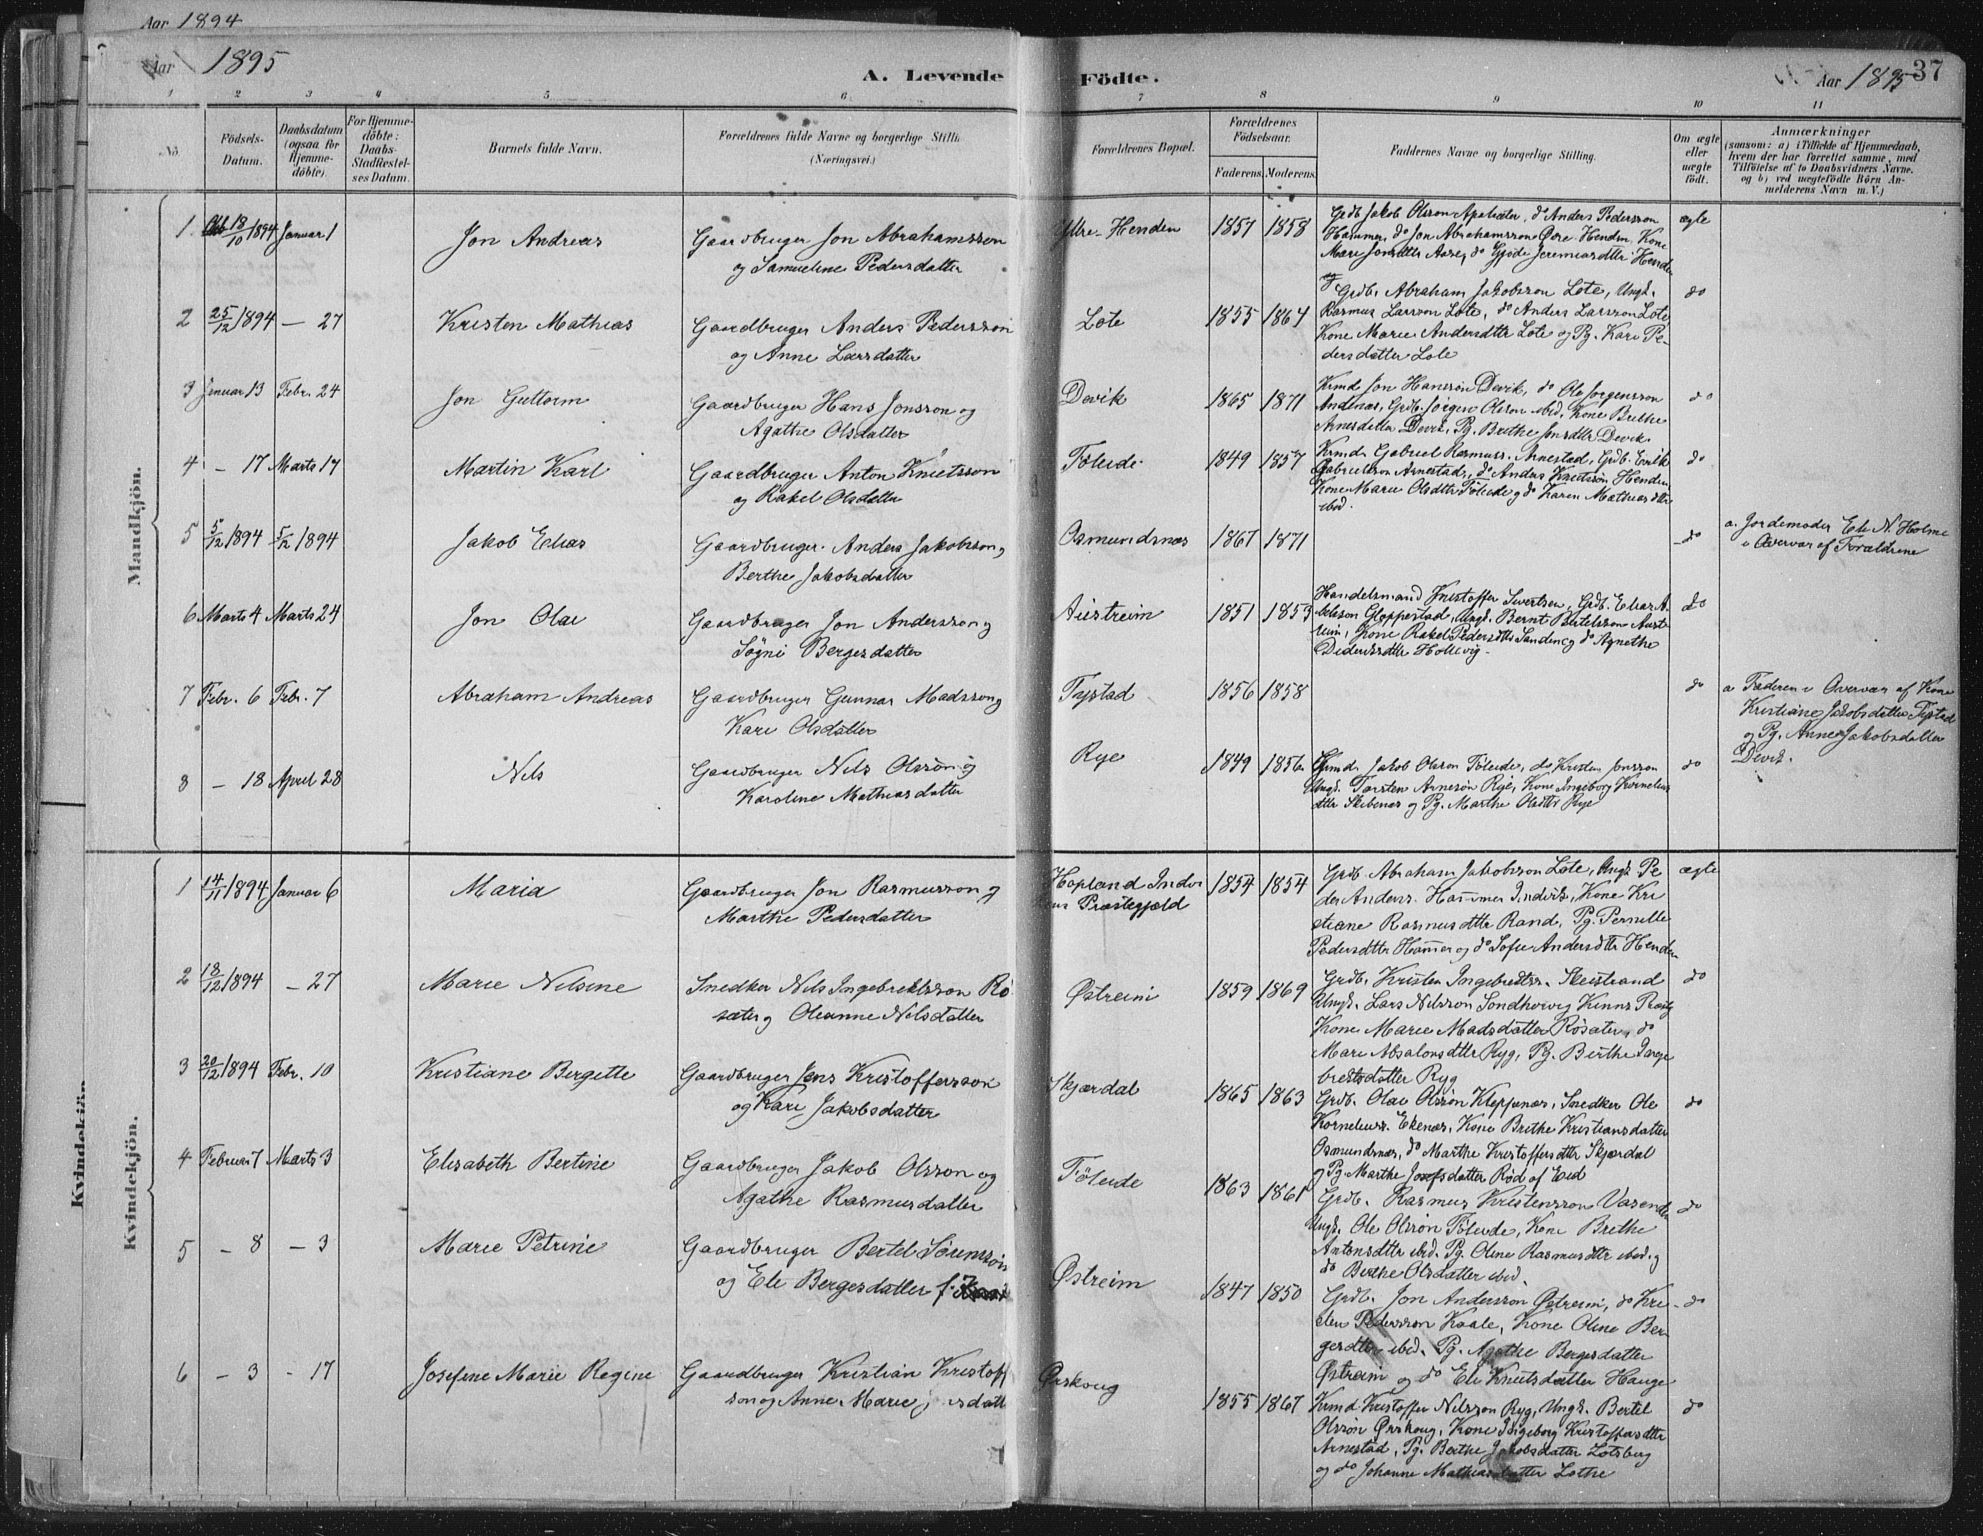 Aar 1894
Aar 1895
A. Levende Födte.
Aar 1895
37
1 2 3 4 5 6 7 8 9 10 11
No.
Födsels-Datum.
Daabsdatum (ogsaa for Hjemme-döbte).
For Hjemme-döbte: Daabs-Stadfæstel-ses Datum.
Barnets fulde Navn.
Forældrenes fulde Navne og borgerlige Stilli
(Næringsvei.)
Forældrenes Bopæl.
Forældrenes Födselsaar.
Faderens. Moderens.
Faddernes Navne og borgerlige Stilling.
Om ægte eller uægte födt.
Anmærkninger
(saasom: a) i Tilfælde af Hjemmedaab,
hvem der har forrettet samme, med
Tilföielse af to Daabsvidners Navne.
og b) ved uægtefödte Börn An-
melderens Navn m. V.)
Mandkjön.
1 18/10 1894 Januar 1 Jon Andreas Gaardbruger Jon Abrahamsson
og Samueline Pedersdatter
Ytre-Henden 1857 1858
Grdb. Jakob Olsson Apalsæter, do Anders Pedersson
Hammer, do Jon Abrahamsson Øvre Henden, Kone
Mari Jonsdttr Aase, do Gjøde Jeremiasdttr Henden
ægte
2 25/12 1894 — 27 Kristen Mathias Gaardbruger Anders Pedersson
og Anne Larsdatter
Lote 1855 1864
Grdb. Abraham Jakobsson Lote, Ungk.
Rasmus Larsson Lote, do Anders Larsson Lote,
Kone Marie Andersdttr Lote og Pg. Kari Pe-
dersdatter Lote
do
3 Januar 13 Febr. 24 Jon Guttorm Gaardbruger Hans Jonsson og
Agathe Olsdatter
Devik 1865 1871
Krmd Jon Hansson Devik, do Ole Jørgensson
Andenæs, Grdb. Jørgen Olsson ibid, Kone Brithe
Arnesdatter Devik, Pg. Brithe Jonsdttr Devik.
do
4 — 17 Marts 17 Martin Karl Gaardbruger Anton Knutsson
og Rakel Olsdatter
Föleide 1849 1857
Krmd. Gabriel Rasmuss. Arnestad, Grdb. Erik
Gabrielsson Arnestad, do Anders Knutsön Henden
Kone Marie Olsdttr Föleide og do Karen Mathiasdttr
ibid.
do
5 5/12 1894 5/12 1894 Jakob Elias Gaardbruger Anders Jakobsson og
Berthe Jakobsdatter
Osmundsnæs 1867 1871 do
a. Jordemoder Eli N. Holme
i Overvær af Forældrene
6 Marts 4 Marts 24 Jon Olai Gaardbruger Jon Andersson og
Søgni Bergesdatter
Austreim 1851 1853
Handelsmand Kristoffer Sivertsen, Grdb. Elias A.
Gloppestad, Ungk. Bernt Bertelsson Aust-
reim, Kone Rakel Pedersdttr Sanden og do Agnethe
Didriksdttr Hollevig.
do
7 Febr. 6 Febr. 7 Abraham Andreas Gaardbruger Gunnar Madsson og
Kari Olsdatter
Tystad 1856 1858 do
a Faderen i Overvær af Kone
Kristiane Jakobsdatter Tystad
og Pg. Anne Jakobsdatter
Devik.
8 — 18 April 28 Nils Gaardbruger Nils Olsson og
Karoline Mathiasdatter
Rye 1849 1856
Krmd. Jakob Olsson Föleide, do Kristen Jonsson
Ungk. Torsten Arnesøn Rye, Kone Ingeborg Kornelius
dttr Skibenes og Pg. Marthe Olsdttr Rye
do
Kvindekjön.
Kvindekjön.
1 14/11 1894 Januar 6 Maria Gaardbruger Jon Rasmusson og
Marthe Pedersdatter
Hopland Indvi
kens Præstegjæld 1854 1854
Grdb. Abraham Jakobsson Lote, Ungk. Pe-
der Anders. Hammer Indvik, Kone Kri
stiane Rasmusdttr Rand, Pg. Pernille
Pedersdttr Hammer og do Sofie Andersdttr Henden
ægte
2 18/12 1894 — 27 Marie Nilsine Snedker Nils Ingebrektsson Rö
sæter og Oleanne Nilsdatter
Østreim 1859 1869
Grdb. Kristen Ingebrettss. Skeistrand
Ungk. Lars Nilsson Sondhovig Kinns Præstg
Kone Marie Madsdatter Røsæter, do
Mari Absalonsdttr Ryg, Pg. Berthe Inge
brektsdatter Ryg
do
3 20/12 1894 Febr. 10 Kristiane Bergette Gaardbruger Jens Kristoffersson
og Kari Jakobsdatter
Skjærdal 1865 1863
Grdb. Olai Olsson Kleppenæs, Snedker Ole
Korneliuss. Ekenæs, Kone Brithe Kristiansdatter
Osmundsnæs, do Marthe Kristoffersdttr Skjærdal
og Pg. Marthe Josefsdatter Rød af Eid
do
4 Februar 7 Marts 3 Elisabeth Bertine Gaardbruger Jakob Olsson og
Agathe Rasmusdatter
Föleide 1863 1861
Grdb. Rasmus Kristensson Vasenden
Ungk. Ole Olsson Föleide, Kone Brithe
Antonsdttr ibid. Pg. Oline Rasmusdttr ibid. og
do Berthe Olsdatter ibid.
do
5 — 8 — 3 Marie Petrine Gaardbruger Bertel
og Eli Bergesdatter f.
Østreim 1847 1850
Grdb. Jon Andersson Østreim, do Kri-
sten Pedersson Kaale, Kone Oline Ber-
gesdttr ibid. Pg. Agathe Bergesdatter
Østreim og do Eli Knutsdatter Hauge
do
6 — 3 — 17 Josefine Marie Regine Gaardbruger Kristian Kristoff
son og Anne Marie
Ørskoug 1855 1867
Krmd Kristoffer Nilsson Ryg, Ungk. Bertil
Olsson Ørskoug, Kone Ingeborg Kristoffersdttr
Arnestad, Pg. Berthe Jakobsdatter Lotsberg
og do Johanne Mathiasdatter Lothe
do